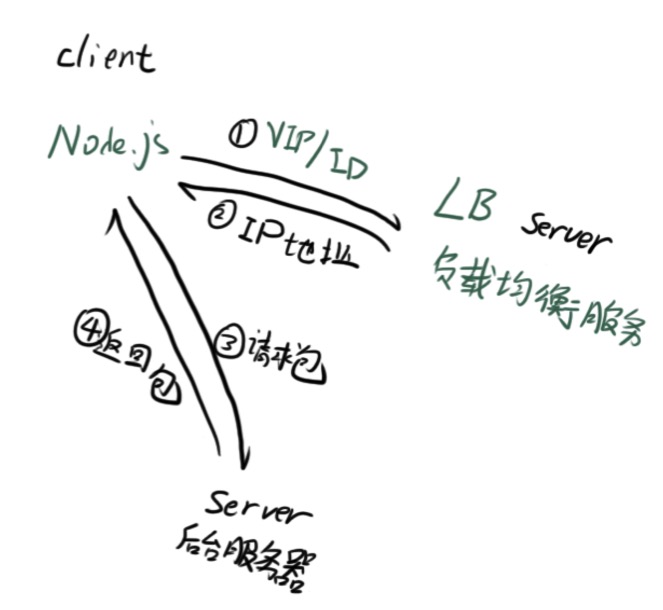 client
Node.js
① VIP/ID
② IP地址
LB Server
负载均衡服务
③请求包
④返回包
Server
后台服务器